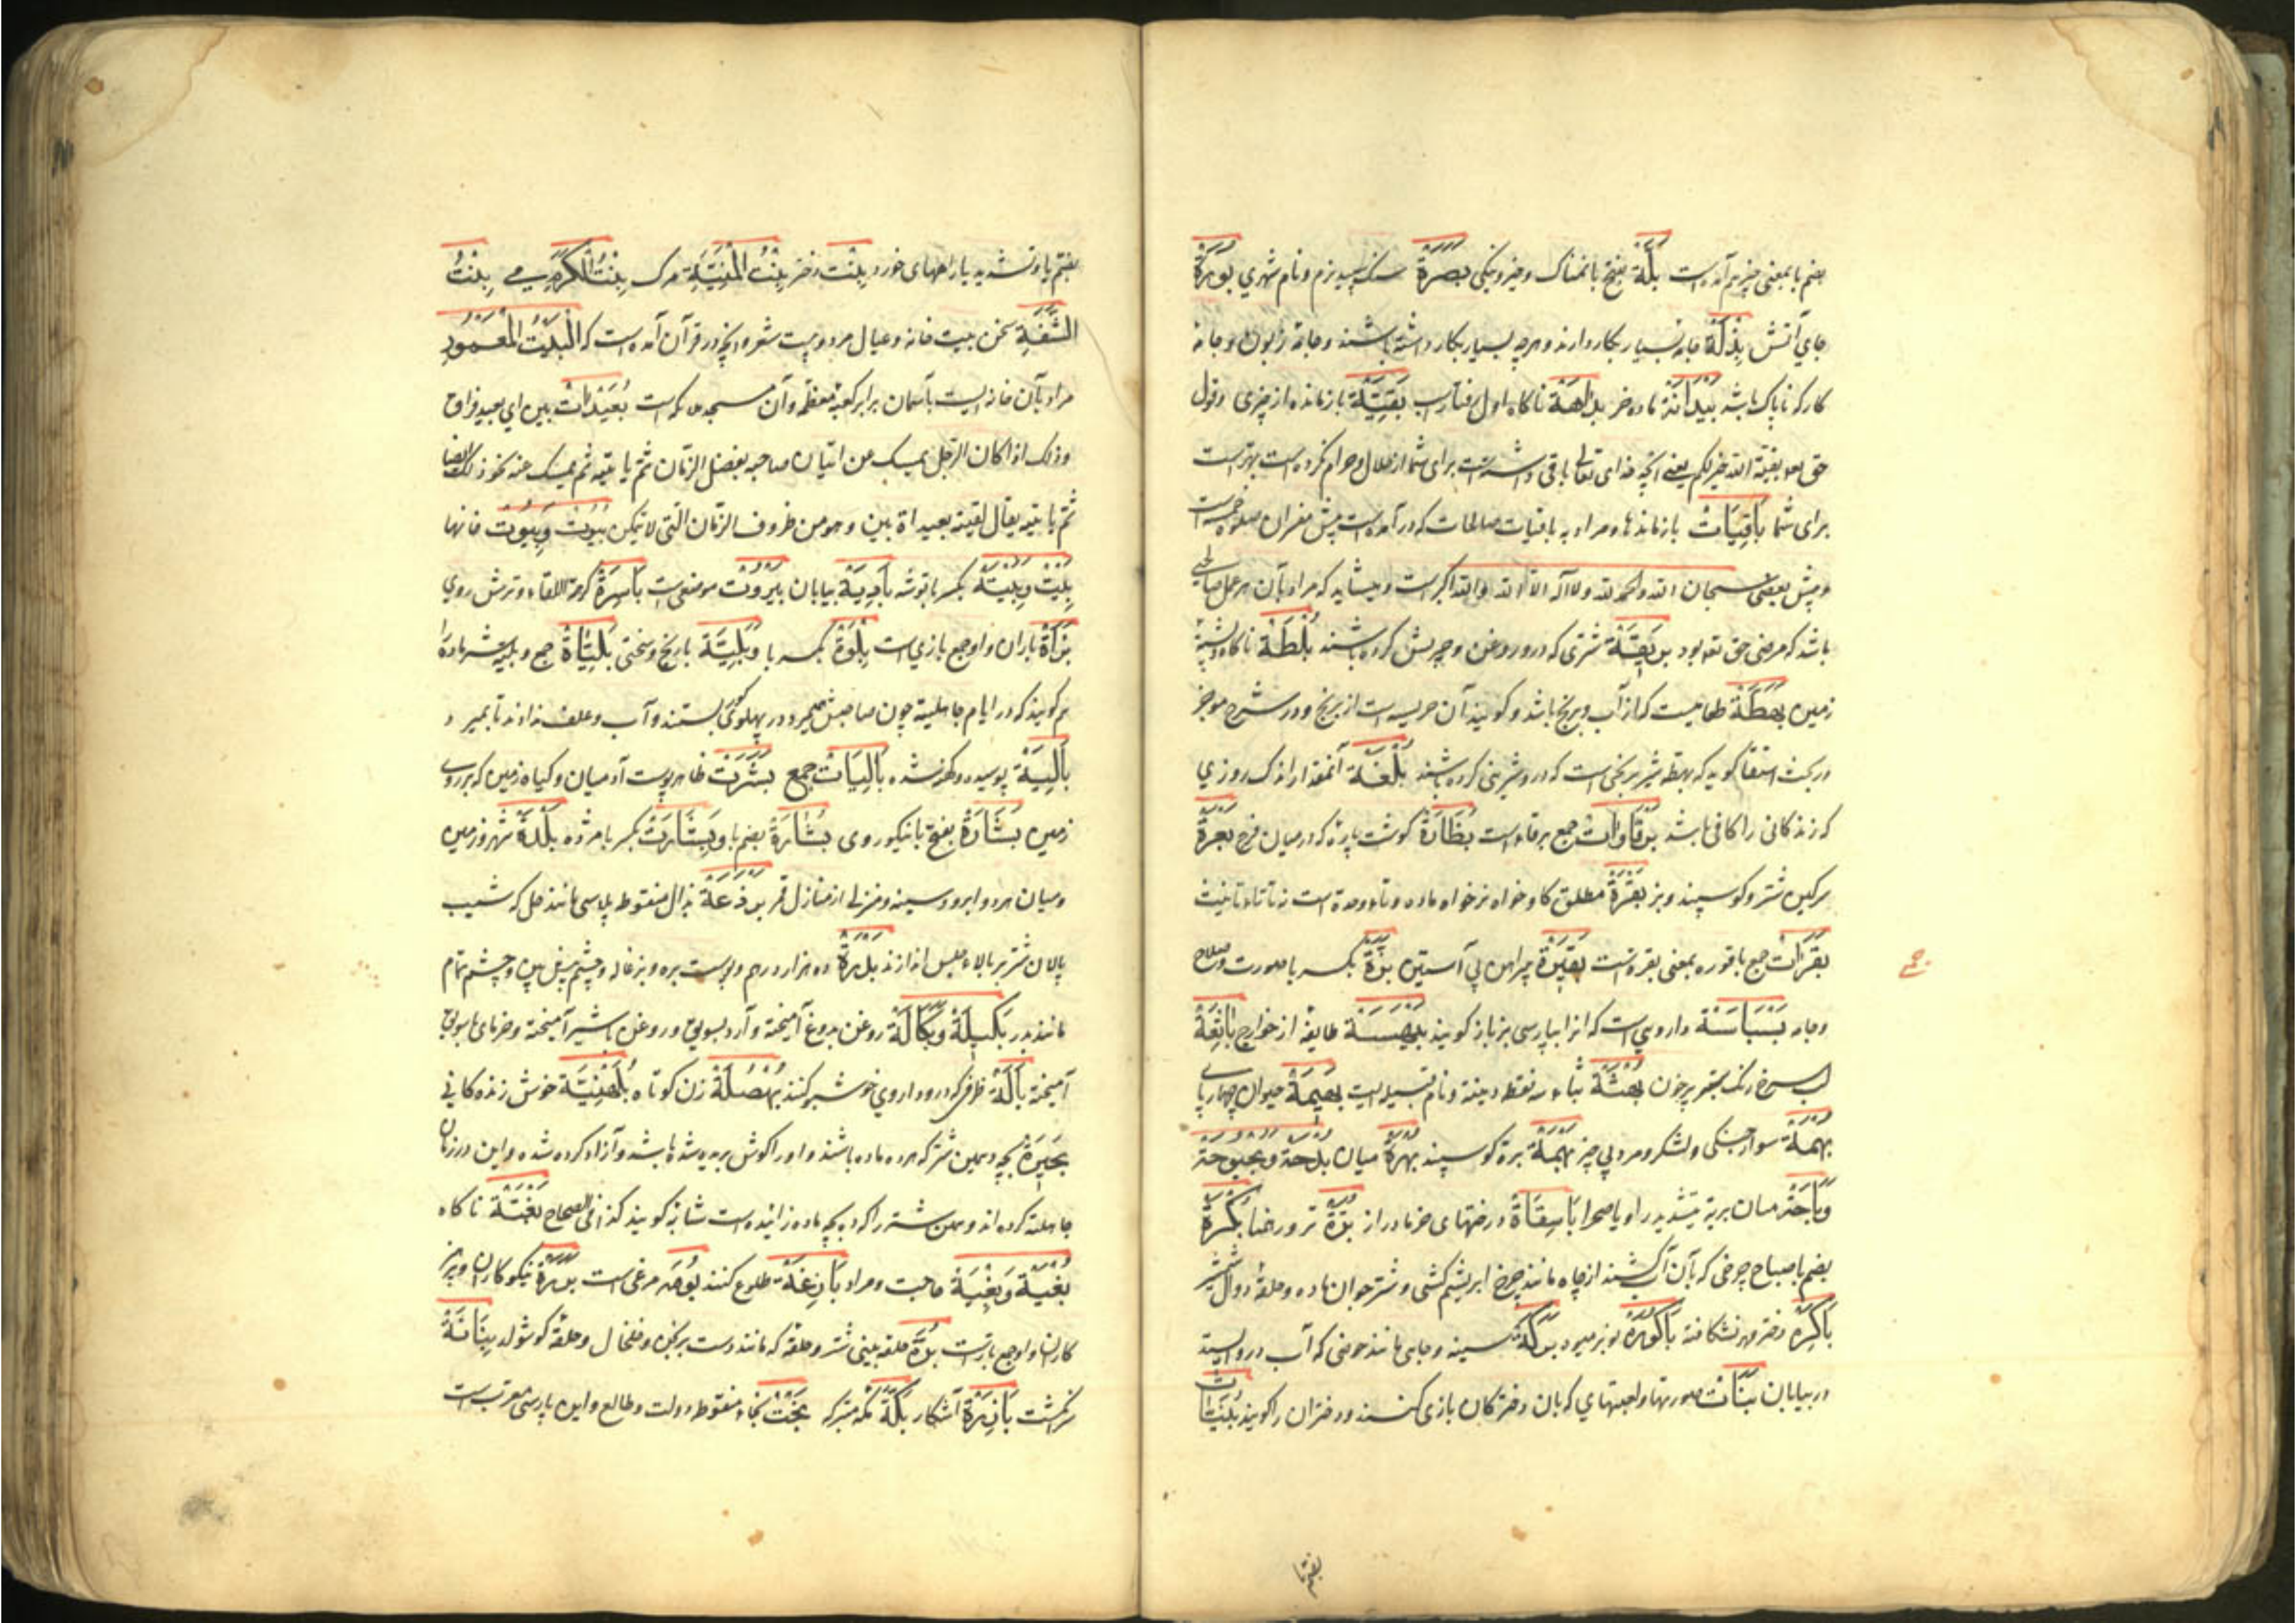 بضم با بمعنی چیز هم آمده است بَلَّة بفتح با نمناک و چیز و نیکی بَصْرَة سنک سپید نرم و نام شهری بُوْرَة
جای آتش بِذْلَة جامهٔ بسیار بکار دارند و هرچه بسیار بکار داشته باشند و جامهٔ زبون و جامه
کار که ناپاک باشد بَیْدَانَة ماده خر بَدَاهَة ناکاه اول رفتار اسپ بَقِیَّة بازمانده از چیزی و قول
حق تعالی بقیة الله خیر لکم یعنی آنچه خدای تعالی باقی داشته است برای شما از حلال و حرام نکرده است بهتر است
برای شما بَاقِیَاتْ بازمانده‌ها و مراد به باقیات صالحات که در آمده است پیش مفسران صلوة خمس است
و پیش بعضی سبحان الله والحمد لله ولا اله الا الله والله اکبر است و میشاید که مراد بآن هر عمل صالحی
باشد که مرضی حق تعالی بود بَرِیْقَة شیری که درو روغن و چربش کرده باشند بَلْطَة ناکاه و پشتهٔ
زمین بَهَطَّة طعامیست که از آب و برنج باشد و کویند آن هریسه است از برنج و در شرح موجز
در بحث استسقا کوید که بهطه شیر برنجی است که درو شیرینی کرده باشند بُلْغَة آنمقدار اندک روزی
که زندکانی را کافی باشد بَرْقَاوَاتْ جمع برقاء است بُظَارَة کوشت پاره که درمیان فرج بَعْرَة
سرکین شتر و کوسپند و بز بَقَرَة مطلق کاو خواه نر خواه ماده و تاء وحدة است نه تاء تانیث
بَقَرَاتْ جمع باقوره بمعنی بقره است بَقِیْرَة پیراهن بی آستین بِزَّة بکسر با صورت و سلاح
و جامه بَسْبَاسَة داروییست که انرا بپارسی بزباز کویند بَیْهَسِیَّة طایفهٔ از خوارج بَاثِعَة
لب سرخ رنک سطبر پرخون بُهْثَة بثاء سه نقطه و نام قبیله ایست بَهِیْمَة حیوان چهارپای
بُهْمَة سوار جنکی و لشکر و مرد بی چیز بَهْمَة برهٔ کوسپند بُهْرَة میان بَلْدَة و بُحْبُوحَة
وَبَاحَة میان بریّة بتشدید را و یا صحرا بَاسِقَاة درختهای خرما دراز بَزَّة تر و رعنا بَکْرَة
بضم با صباح چرخی که بآن آب کشند از چاه مانند چرخ ابریشم کشی و شتر جوان ماده و حلقهٔ دوال شمشیر
بَاکِرَه دختر مهر نشکافته بَاکُوْرَة نوبر میوه بِرْکَة سینه و جایی مانند حوضی که آب درو ایستد
در بیابان بَنَاتْ صورتها و لعبتهای که بآن دخترکان بازی کنند و دختران را کویند بُنَیَّاتْ
بضم با و تشدید یا راههای خورد بِنْت دختر بِنْتُ الْمَنِیَّةِ مرک بِنْتُ الْکَرْمِ می بِنْتُ
الشَّفَةِ سخن بیت خانه و عیال مرد و بیت شعر و آنچه در قرآن آمده است که اَلْبَیْتُ الْمَعْمُوْرِ
مراد بآن خانه ایست باسمان برابر کعبهٔ معظمه و آن مسجد ملائکه است بُعَیْدَاتْ بین ای بعید فراق
وذلک اذا کان الرجل یمسک عن اتیان صاحبه بعض الزمان ثم یاتیه ثم یمسک عنه نحو ذلک ایضا
ثم یاتیه یقال لقیته بعیداة بین وهو من ظروف الزمان التی لا یتمکن بُیُوْتْ وَبِیُوْتْ خانها
بِیْتْ وَبِیْتَة بکسر با توشه بَادِیَة بیابان بَیْرُوْت موضعی است بَاسِرَة کریه اللقاء و ترش روی
بُزَاة بازان و او جمع بازی است بِلْوَة بکسر با وبَلِیَّة با رنج و سختی بَلِیَّاة جمع و بلیه شتر ماده را
هم کویند که در ایام جاهلیة چون صاحبش میمرد در پهلوی کورش بستند و آب و علف ندادند تا بمیرد
بَالِیَة پوسیده و کهنه شده بَالِیَاتْ جمع بَشَرَتْ ظاهر پوست آدمیان و کیاه زمین که بر روی
زمین بَشَارَة بفتح با نیکوروی بُشَارَة بضم با وبِشَارَتْ بکسر با مژده بَلْدَة شهر و زمین
و میان هر دو ابرو و سینه و منزلی از منازل قمر بَرْذَعَة بذال منقوط پلاسی مانند جل که شیب
پالان شتر بر بالاء جلس اندازند بَدْرَة ده هزار درم و پوست بره و بزغاله و چشم پیش بین و چشم تمام
مانند بدر بَکِیْلَة وبَکَالَة روغن بدوغ آمیخته و آرد بسویق و روغن یا شیر آمیخته و خرمای با سویق
آمیخته بَالَة ظرفی که درو داروی خوشبو کنند بُهْصُلَة زن کوتاه بُلَهْنِیَة خوش زنده کانی
بَحِیْرَة بچه دهمین شتر که هر ده ماده باشند و او را کوش بریده شده باشد و آزاد کرده شده و این در زمان
جاهلیة کرده اند و همین شتر را که ده بچه ماده زائیده است سائبه کویند کذا فی الصحاح بَغْتَة ناکاه
بُغْیَة وَبِغْیَة حاجت و مراد بَازِغَة طلوع کننده بُوْهَة مرغی است بَرَرَة نیکوکاران و پرهیز
کاران و او جمع بار است بُرَة حلقهٔ بینی شتر و حلقه که مانند دست برنجن و خلخال و حلقهٔ کوشوار بَنَانَة
سر انکشت بَازِرَة آشکار بَکَّة مکه متبرکه بَخْتْ بخاء منقوط دولت و طالع و این پارسی معرب است